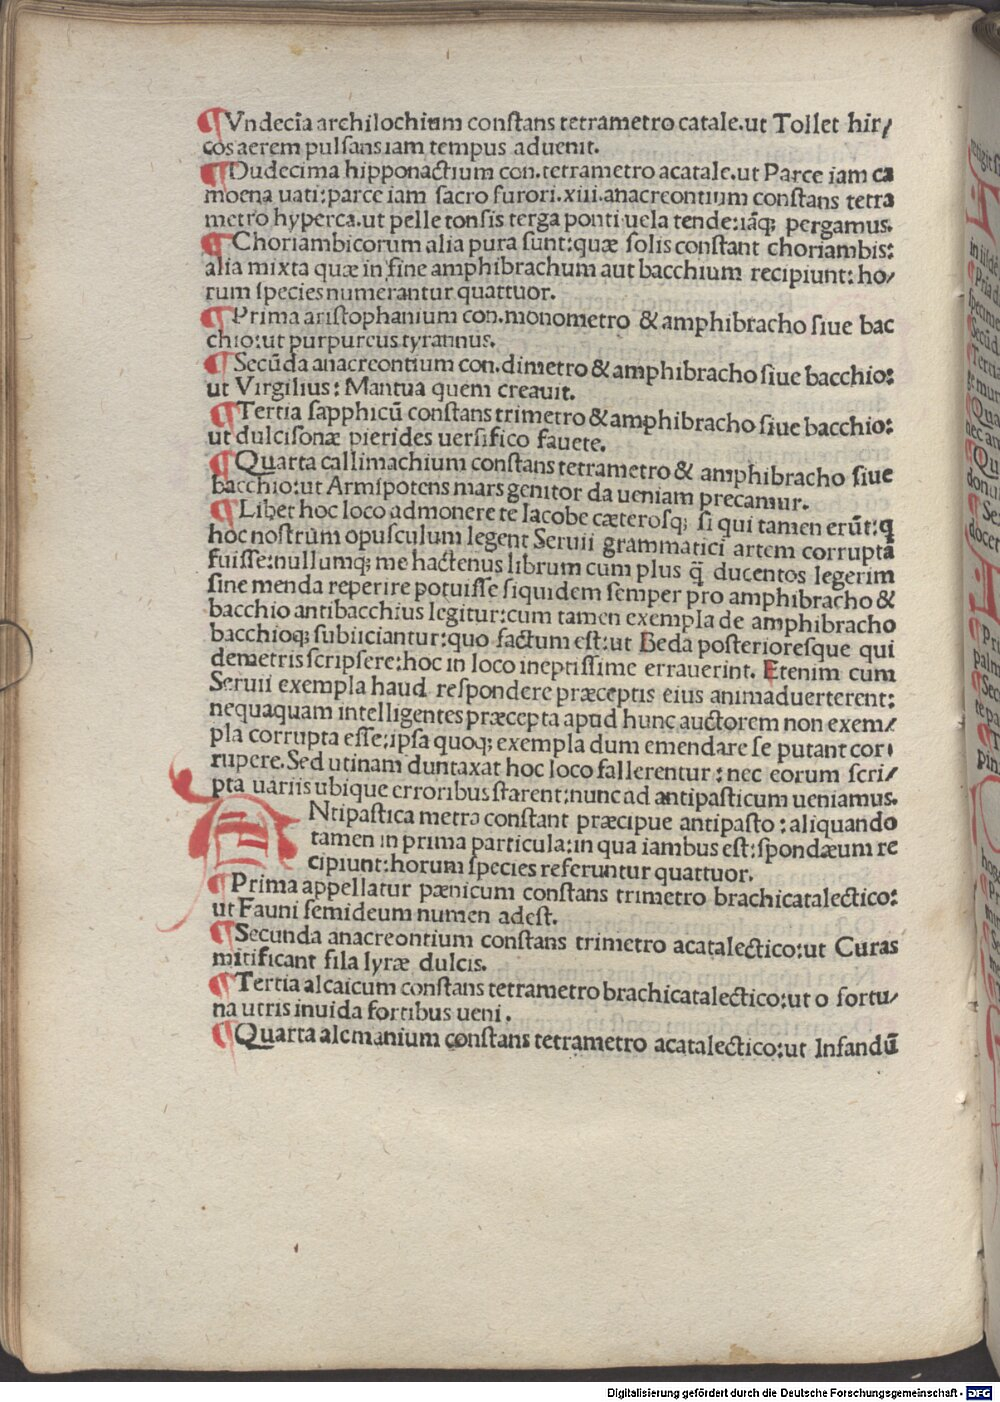 ¶Vndecīa archilochium conſtans tetrametro catale.ut Tollet hir/
cos aerem pulſans iam tempus aduenit.
¶Dudecima hipponactium con.tetrametro acatale.ut Parce iam ca
moena uati:parce iam ſacro furori.xiii.anacreontium conſtans tetra
metro hyperca.ut pelle tonſis terga ponti uela tende:iāq; pergamus.
¶Choriambicorum alia pura ſunt:quæ ſolis conſtant choriambis:
alia mixta quæ in fine amphibrachum aut bacchium recipiunt: ho/
rum ſpecies numerantur quattuor.
¶Prima ariſtophanium con.monometro & amphibracho ſiue bac
chio:ut purpureus tyrannus.
¶Secūda anacreontium con.dimetro & amphibracho ſiue bacchio:
ut Virgilius: Mantua quem creauit.
¶Tertia ſapphicū conſtans trimetro & amphibracho ſiue bacchio:
ut dulciſonæ pierides uerſifico fauete.
¶Quarta callimachium conſtans tetrametro & amphibracho ſiue
bacchio:ut Armipotens mars genitor da ueniam precamur.
¶Libet hoc loco admonere te Iacobe cæteroſq; ſi qui tamen erūt:q
hoc noſtrum opuſculum legent Seruii grammatici artem corruptā
fuiſſe:nullumq; me hactenus librum cum plus q̄ ducentos legerim
ſine menda reperire potuiſſe ſiquidem ſemper pro amphibracho &
bacchio antibacchius legitur:cum tamen exempla de amphibracho
bacchioq; ſubiiciantur:quo factum eſt:ut Beda poſterioreſque qui
demetris ſcripſere:hoc in loco ineptiſſime errauerint. Etenim cum
Seruii exempla haud reſpondere præceptis eius animaduerterent:
nequaquam intelligentes præcepta apud hunc auctorem non exem/
pla corrupta eſſe:ipſa quoq; exempla dum emendare ſe putant cor
rupere.Sed utinam duntaxat hoc loco fallerentur: nec eorum ſcri/
pta uariis ubique erroribus ſtarent:nunc ad antipaſticum ueniamus.
ANtipaſtica metra conſtant præcipue antipaſto: aliquando
tamen in prima particula:in qua iambus eſt:ſpondæum re
cipiunt:horum ſpecies referuntur quattuor.
¶Prima appellatur pænicum conſtans trimetro brachicatalectico:
ut Fauni ſemideum numen adeſt.
¶Secunda anacreontium conſtans trimetro acatalectico:ut Curas
mitificant fila lyræ dulcis.
¶Tertia alcaicum conſtans tetrametro brachicatalectico:ut o fortu/
na utris inuida fortibus ueni.
¶Quarta alcmanium conſtans tetrametro acatalectico:ut Infandū
Digitalisierung gefördert durch die Deutsche Forschungsgemeinschaft - DFG